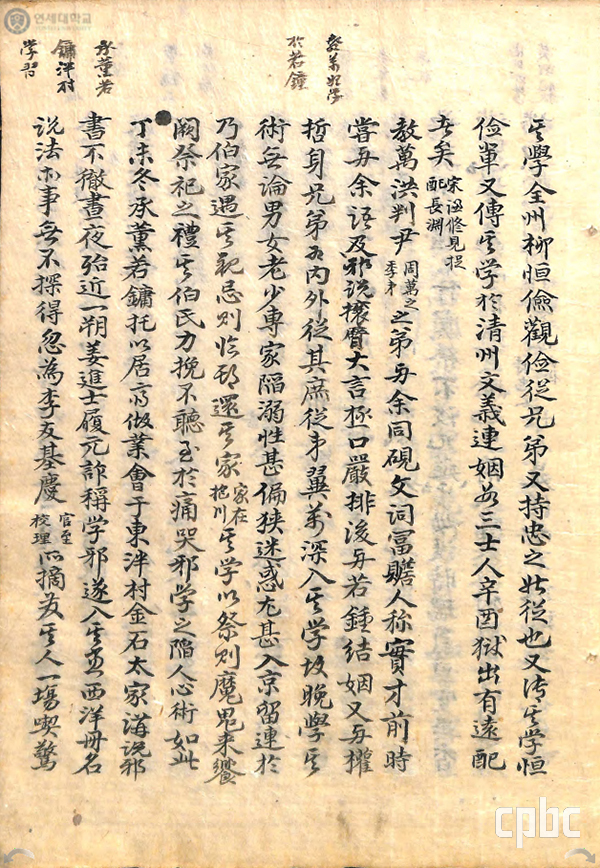 연세대학교
教萬兄學
於若鍾
承薰若
鏞泮村
学習
其學全州柳恒儉觀儉從兄弟又持忠之姑從也又傳其學恒
儉輩又傳其学於清州文義連姻如三士人辛酉獄出有遠配
者矣 宋
配長淵
教萬洪判尹 周萬之
季弟 之弟與余同硯文詞富贍人称實才前時
嘗與余語及邪説攘臂大言極口嚴排後與若鍾結姻又與權
哲身兄弟為内外從其庶從弟翼萬深入其学故晚學其
術無論男女老少專家陷溺性甚偏狹迷惑尤甚入京留連於
乃伯家遇其親忌則臨期還其家 家在
抱川 其学以祭則魔鬼来饗
闕祭祀之禮其伯氏力挽不聽至於痛哭邪学之陷人心術如此
丁未冬承薰若鏞托以居齋做業會于東泮村金石太家講説邪
書不撤晝夜殆近一朔姜進士履元詐稱学邪遂入其中西洋册名
说法等事無不探得忽為李友基慶 官至
校理 所摘发其人一場喫驚
cpbc